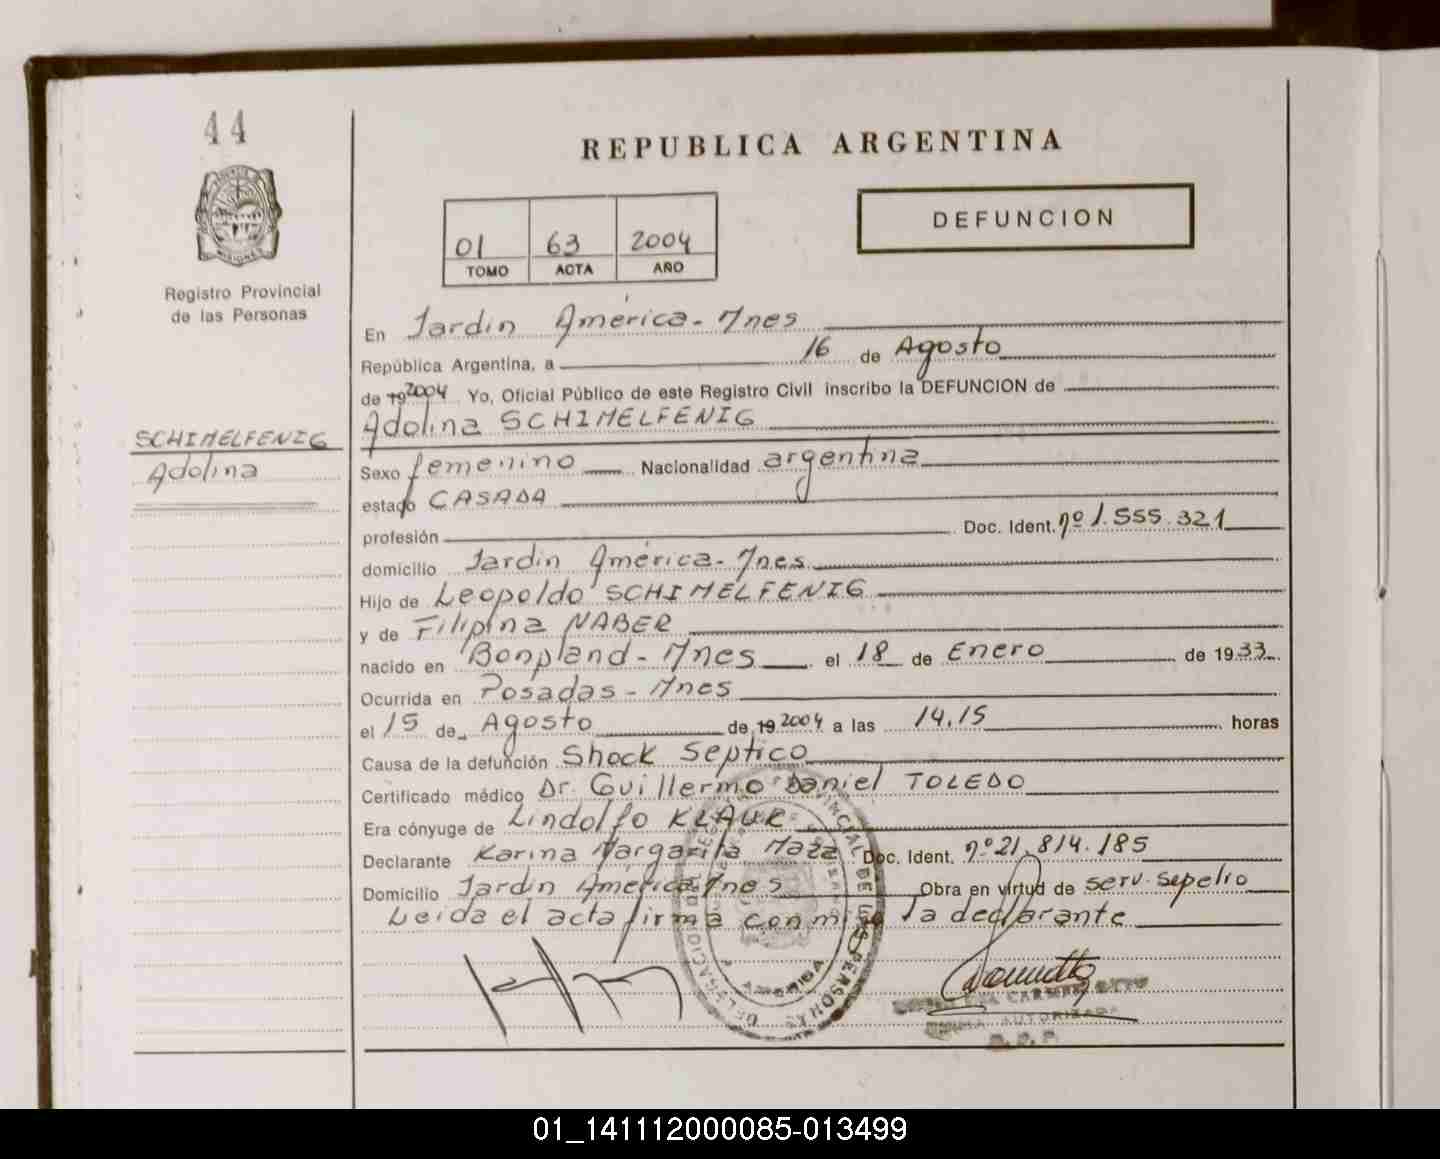 44
REPUBLICA ARGENTINA
MISIONES
01 63 2004
TOMO ACTA AÑO
DEFUNCION
Registro Provincial
de las Personas
En Jardín América - Mnes
República Argentina, a 16 de Agosto
de 19 2004 Yo, Oficial Público de este Registro Civil inscribo la DEFUNCION de
Adolina SCHIMELFENIG
SCHIMELFENIG
Adolina
Sexo femenino Nacionalidad argentina
estado CASADA
profesión Doc. Ident. nº 1.555.321
domicilio Jardín América - Mnes.
Hijo de Leopoldo SCHIMELFENIG
y de Filipina NABER
nacido en Bonpland - Mnes el 18 de Enero de 1933
Ocurrida en Posadas - Mnes
el 15 de Agosto de 19 2004 a las 14,15 horas
Causa de la defunción Shock Septico
Certificado médico Dr. Guillermo Daniel TOLEDO
Era cónyuge de Lindolfo KLAUK
Declarante Karina Margarita Maza Doc. Ident. nº 21.814.185
Domicilio Jardín América Mnes Obra en virtud de serv. sepelio
Leida el acta firma conmigo la declarante
PROVINCIAL DE LAS PERSONAS
FIRMA AUTORIZADA
01_141112000085-013499